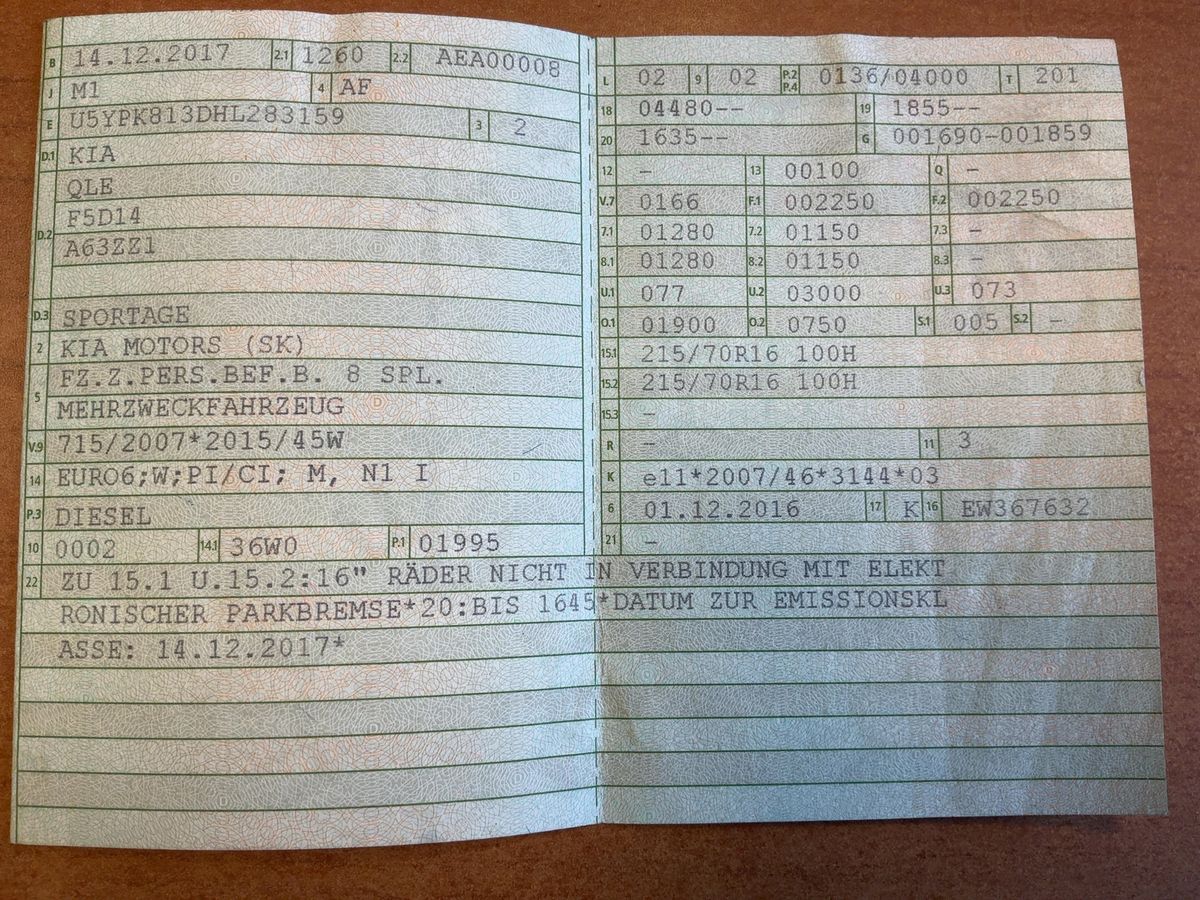 B 14.12.2017 2.1 1260 2.2 AEA00008
J M1 4 AF
E U5YPK813DHL283159 3 2
D.1 KIA
D.2 QLE
F5D14
A63ZZ1
D.3 SPORTAGE
2 KIA MOTORS (SK)
5 FZ.Z.PERS.BEF.B. 8 SPL.
MEHRZWECKFAHRZEUG
V.9 715/2007*2015/45W
14 EURO6;W;PI/CI; M, N1 I
P.3 DIESEL
10 0002 14.1 36W0 P.1 01995
L 02 9 02 P.2 P.4 0136/04000 T 201
18 04480-- 19 1855--
20 1635-- G 001690-001859
12 - 13 00100 Q -
V.7 0166 F.1 002250 F.2 002250
7.1 01280 7.2 01150 7.3 -
8.1 01280 8.2 01150 8.3 -
U.1 077 U.2 03000 U.3 073
O.1 01900 O.2 0750 S.1 005 S.2 -
15.1 215/70R16 100H
15.2 215/70R16 100H
15.3 -
R - 11 3
K e11*2007/46*3144*03
6 01.12.2016 17 K 16 EW367632
21 -
22 ZU 15.1 U.15.2:16" RÄDER NICHT IN VERBINDUNG MIT ELEKT
RONISCHER PARKBREMSE*20:BIS 1645*DATUM ZUR EMISSIONSKL
ASSE: 14.12.2017*